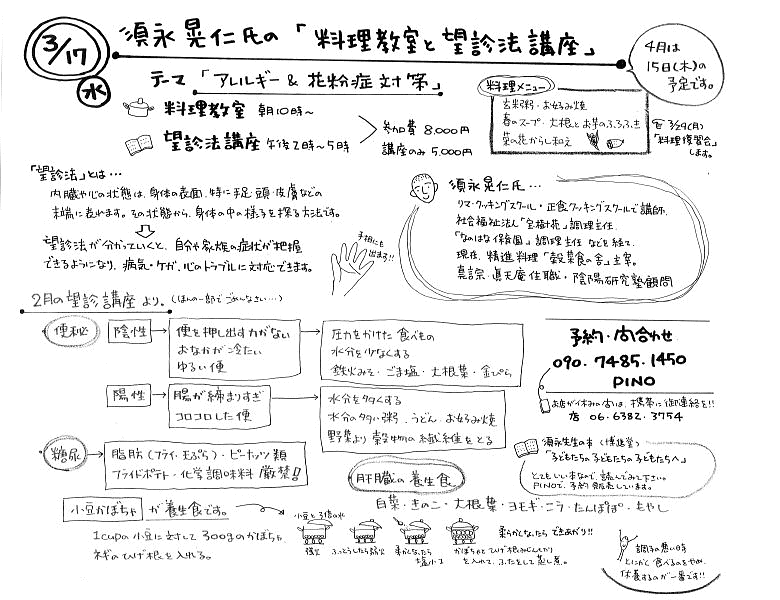 3/17
水
須永晃仁氏の「料理教室と望診法講座」
4月は
15日(木)の
予定です。
テーマ「アレルギー & 花粉症対策」
料理教室 朝10時〜
望診法講座 午後2時〜5時
参加費 8,000円
講座のみ 5,000円
料理メニュー
玄米粥・お好み焼
春のスープ・大根とお芋のふろふき
菜の花からし和え
3/29(月)
「料理復習会」
します。
「望診法」とは…
内臓や心の状態は、身体の表面、特に手足・頭・皮膚などの
末端に表れます。その状態から、身体の中の様子を探る方法です。
望診法が分かっていくと、自分や家族の症状が把握
できるようになり、病気・ケガ、心のトラブルに対応できます。
手相にも
出ます!!
須永晃仁氏…
リマ・クッキングスクール・正食クッキングスクールで講師、
社会福祉法人「皂樹苑」調理主任、
「なのはな保育園」調理主任 などを経て、
現在、精進料理「穀菜食の舎」主宰。
真言宗 眞天庵住職・陰陽研究塾顧問
2月の望診講座より。(ほんの一部でごめんなさい…)
便秘
陰性
便を押し出す力がない
おなかが冷たい
ゆるい便
圧力をかけた食べもの
水分を少なくする
鉄火みそ・ごま塩・大根葉・金ぴら
陽性
腸が締まりすぎ
コロコロした便
水分を多くする
水分の多い粥、うどん、お好み焼
野菜より穀物の繊維をとる
糖尿
脂肪(フライ・天ぷら)・ピーナッツ類
フライドポテト・化学調味料 厳禁!!
小豆かぼちゃ が養生食です。
1cupの小豆に対して300gのかぼちゃ
ネギのひげ根を入れる。
肝臓の養生食
白菜・きのこ・大根葉・ヨモギ・ニラ・たんぽぽ・もやし
小豆と3倍の水
強火
ふっとうしたら弱火
柔かくなったら
塩小1
かぼちゃとひげ根みじんぎり
を入れて、ふたをして蒸し煮。
柔らかくなったら できあがり!!
予約・問合わせ
090.7485.1450
PINO
お店が休みの日は、携帯に御連絡を!!
店 06.6382.3754
須永先生の本(博進堂)
「子どもたちの子どもたちの子どもたちへ」
とてもいい本なので、読んでみて下さい。
PINOで、予約販売しています。
調子の悪い時
とにかく食べるのをやめ、
休養するのが一番です!!